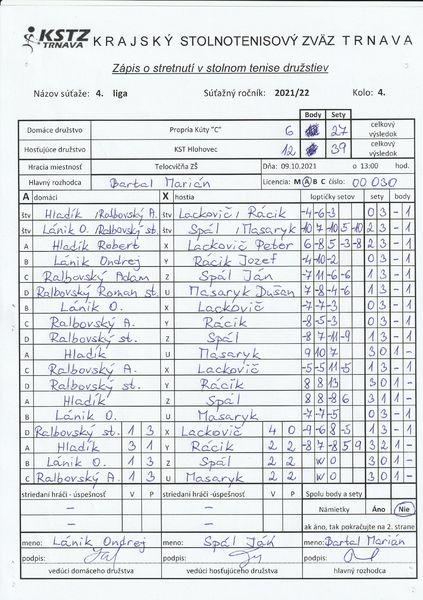 KSTZ TRNAVA KRAJSKÝ STOLNOTENISOVÝ ZVÄZ TRNAVA
Zápis o stretnutí v stolnom tenise družstiev
Názov súťaže: 4. liga Súťažný ročník: 2021/22 Kolo: 4.
Body Sety
Domáce družstvo Propria Kúty "C" 6 27 celkový výsledok
Hosťujúce družstvo KST Hlohovec 12 39 celkový výsledok
Hracia miestnosť Telocvičňa ZŠ Dňa: 09.10.2021 o 13:00 hod.
Hlavný rozhodca Bartal Marián Licencia: M A B C číslo: 00 030
A domáci X hostia loptičky setov sety body
štv Hladík /Ralbovský A. štv Lackovič / Rácik -4 -6 -3 0 3 - 1
štv Lánik O. /Ralbovský st. štv Spál / Masaryk -10 7 -10 5 -10 2 3 - 1
A Hladík Robert X Lackovič Peter 6 -8 5 -3 -8 2 3 - 1
B Lánik Ondrej Y Rácik Jozef -4 -10 -2 0 3 - 1
C Ralbovský Adam Z Spál Ján -7 11 -6 -6 1 3 - 1
D Ralbovský Roman st. U Masaryk Dušan -7 -8 -4 -6 1 3 - 1
B Lánik O. X Lackovič -7 -7 -3 0 3 - 1
C Ralbovský A. Y Rácik -8 -5 -3 0 3 - 1
D Ralbovský st. Z Spál -8 7 -11 -9 1 3 - 1
A Hladík U Masaryk 9 10 7 3 0 1 -
C Ralbovský A. X Lackovič -5 -5 11 -5 1 3 - 1
D Ralbovský st. Y Rácik 8 8 13 3 0 1 -
A Hladík Z Spál 8 8 -8 6 3 1 1 -
B Lánik O. U Masaryk -7 -7 -5 0 3 - 1
D Ralbovský st. 1 3 X Lackovič 4 0 -9 -6 8 -5 1 3 - 1
A Hladík 3 1 Y Rácik 2 2 -8 7 -8 5 9 3 2 1 -
B Lánik O. 1 3 Z Spál 2 2 WO 3 0 1 -
C Ralbovský A. 1 3 U Masaryk 2 2 WO 3 0 1 -
striedaní hráči - úspešnosť V P striedaní hráči - úspešnosť V P Spolu body a sety
– – Námietky Áno Nie
– – ak áno, tak pokračujte na 2. strane
meno: Lánik Ondrej meno: Spál Ján meno: Bartal Marián
podpis: podpis: podpis:
vedúci domáceho družstva vedúci hosťujúceho družstva hlavný rozhodca